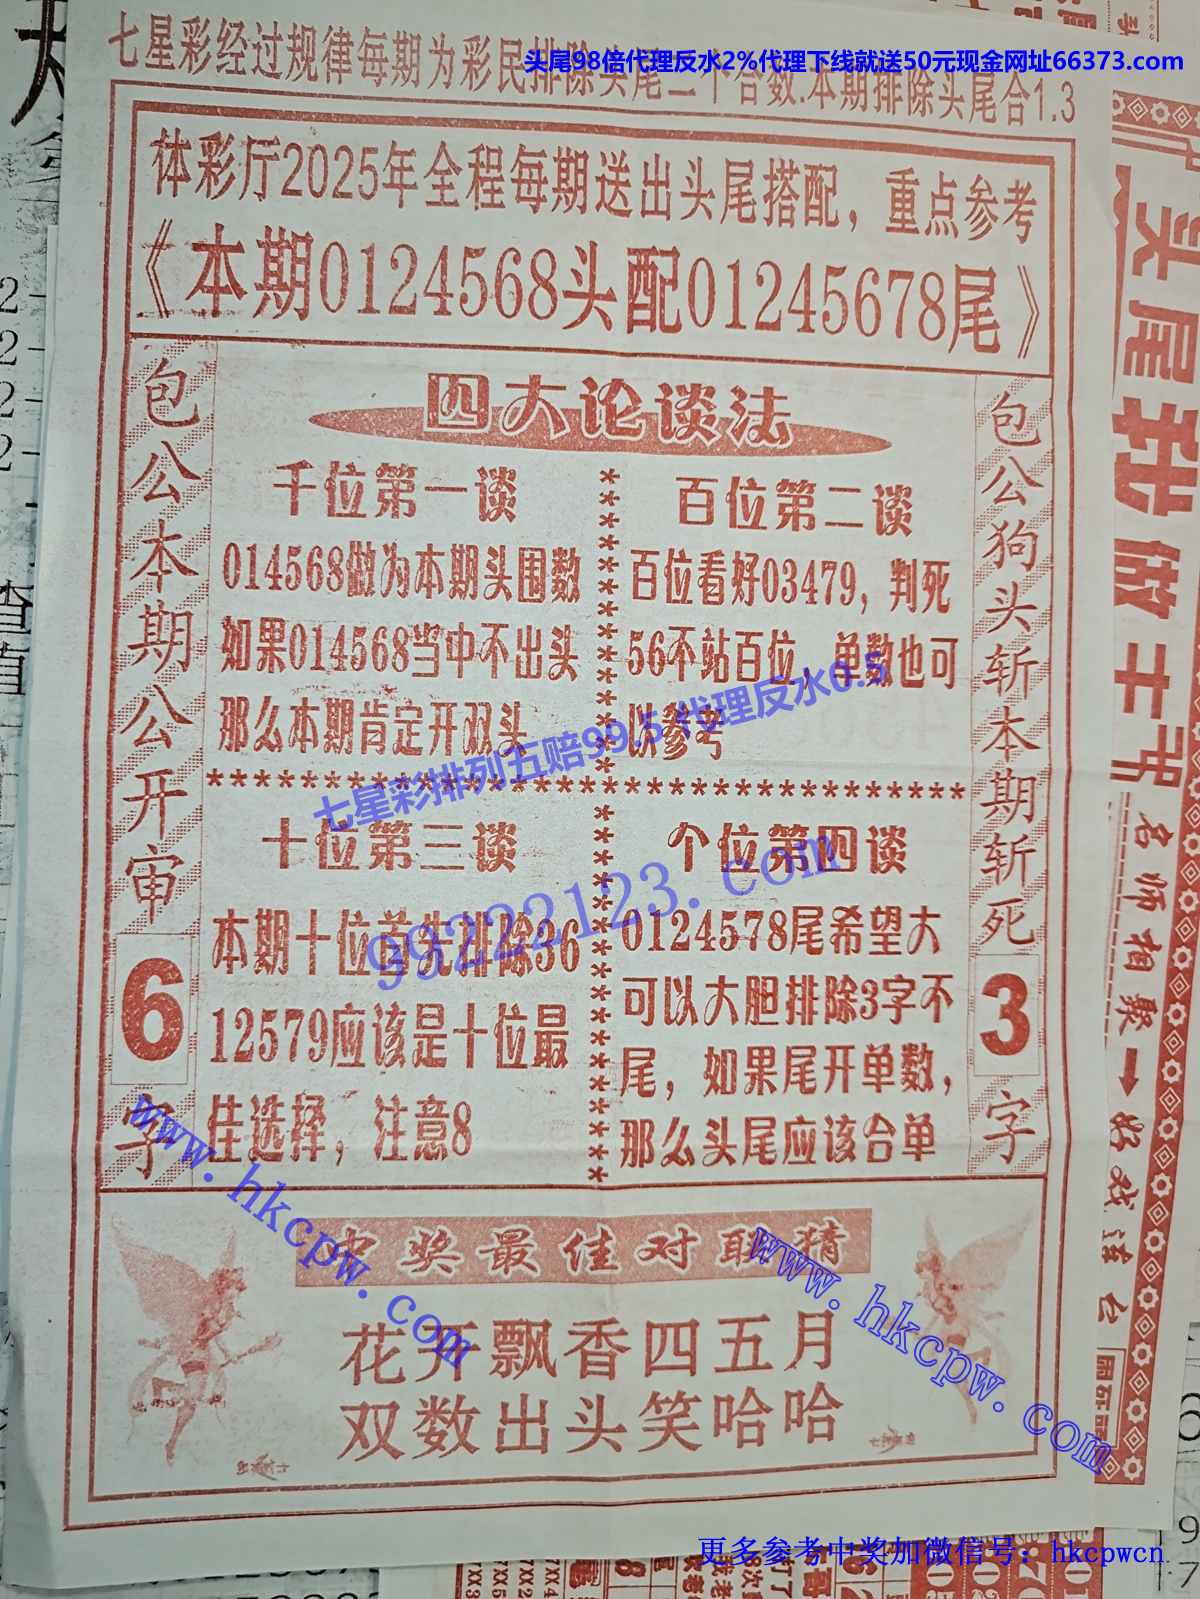 头尾98倍代理反水2%代理下线就送50元现金网址66373.com
七星彩经过规律每期为彩民排除头尾二个合数.本期排除头尾合1.3
体彩厅2025年全程每期送出头尾搭配，重点参考
《本期0124568头配01245678尾》
包公本期公开审6字
四大论谈法
千位第一谈
014568做为本期头围数
如果014568当中不出头
那么本期肯定开双头
百位第二谈
百位看好03479，判死
56不站百位，单数也可
以参考
十位第三谈
本期十位首先排除36
12579应该是十位最
佳选择，注意8
个位第四谈
0124578尾希望大
可以大胆排除3字不
尾，如果尾开单数，
那么头尾应该合单
包公狗头斩本期斩死3字
七星彩排列五赔99.5代理反水0.5
99222123.com
中奖最佳对联猜
花开飘香四五月
双数出头笑哈哈
www.hkcpw.com
www.hkcpw.com
头尾我做主
名师相聚→好戏连台
更多参考中奖加微信号：hkcpwcn